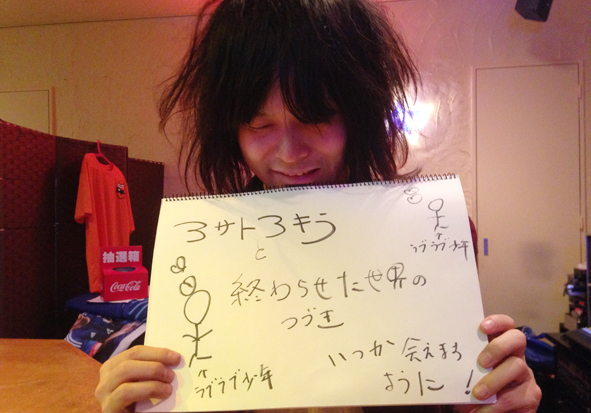 ヨサトヨキウ
と
終わらせた世界の
つづき
いつか会えます
ように!
↑
ラブラブ少年
↑
ラブラブ少年
抽選箱
Coca-Cola